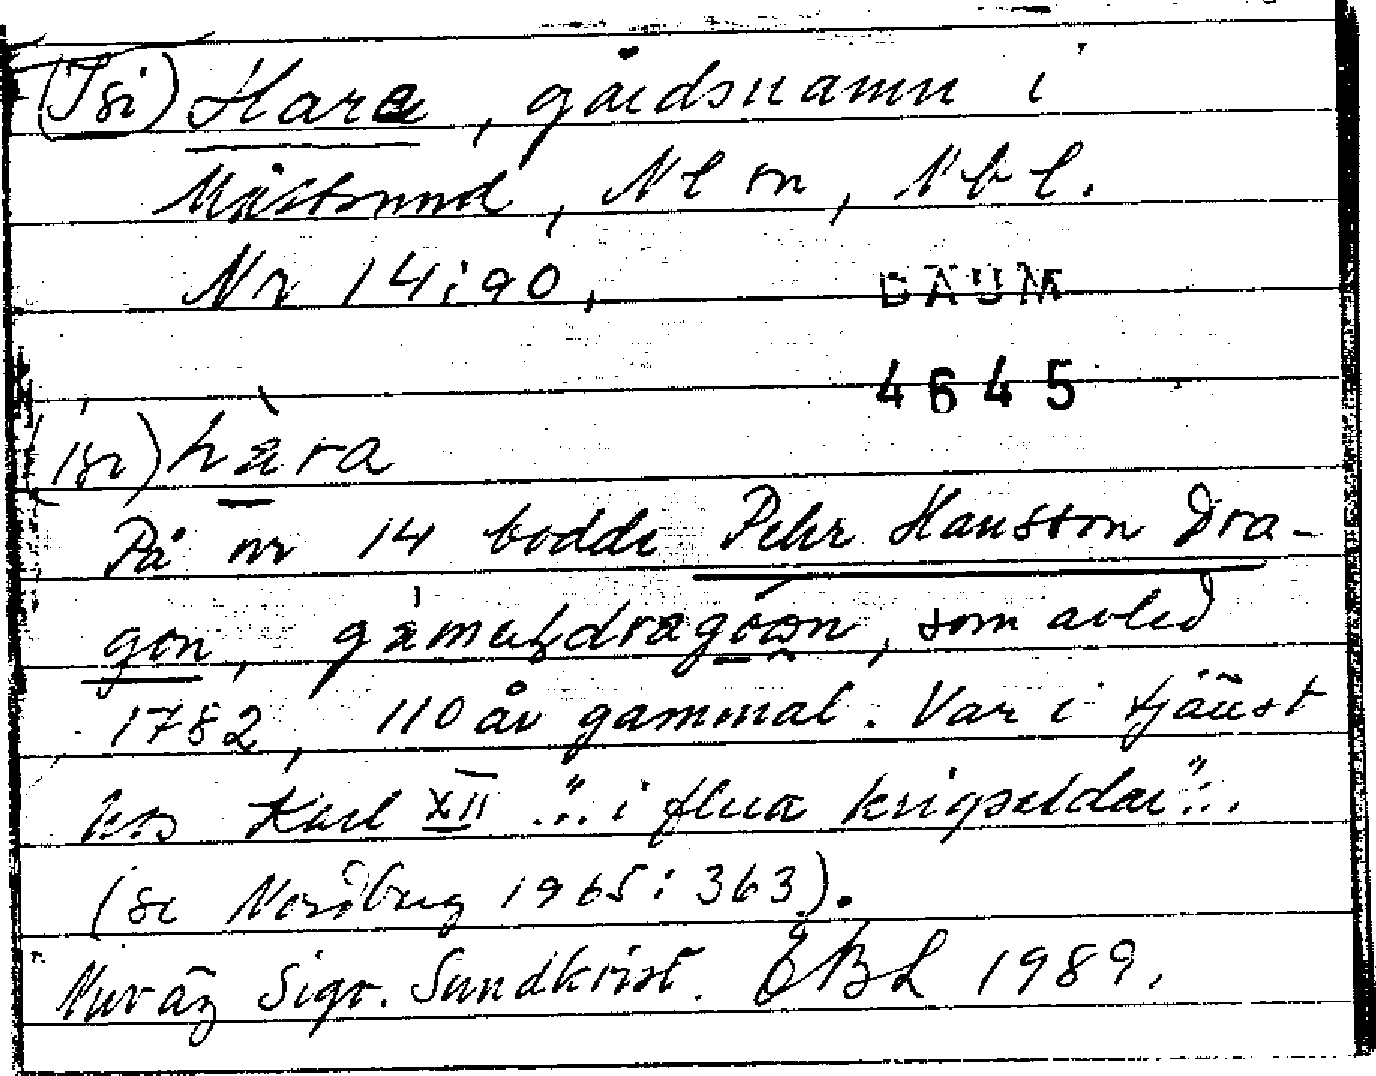 (Isi) Hara, gårdsnamn i
Måttsund, Nl sn, Nbl.
Nr 14:90,
DAUM
4645
(isi) hara
På nr 14 bodde Pehr Hansson Dra-
gon, som avled
1782, 110 år gammal. Var i tjänst
hos Karl XII "... i flera krigseldar"...
(se Nordberg 1965: 363).
Nuv äg Sigv. Sundkvist. EBL 1989.